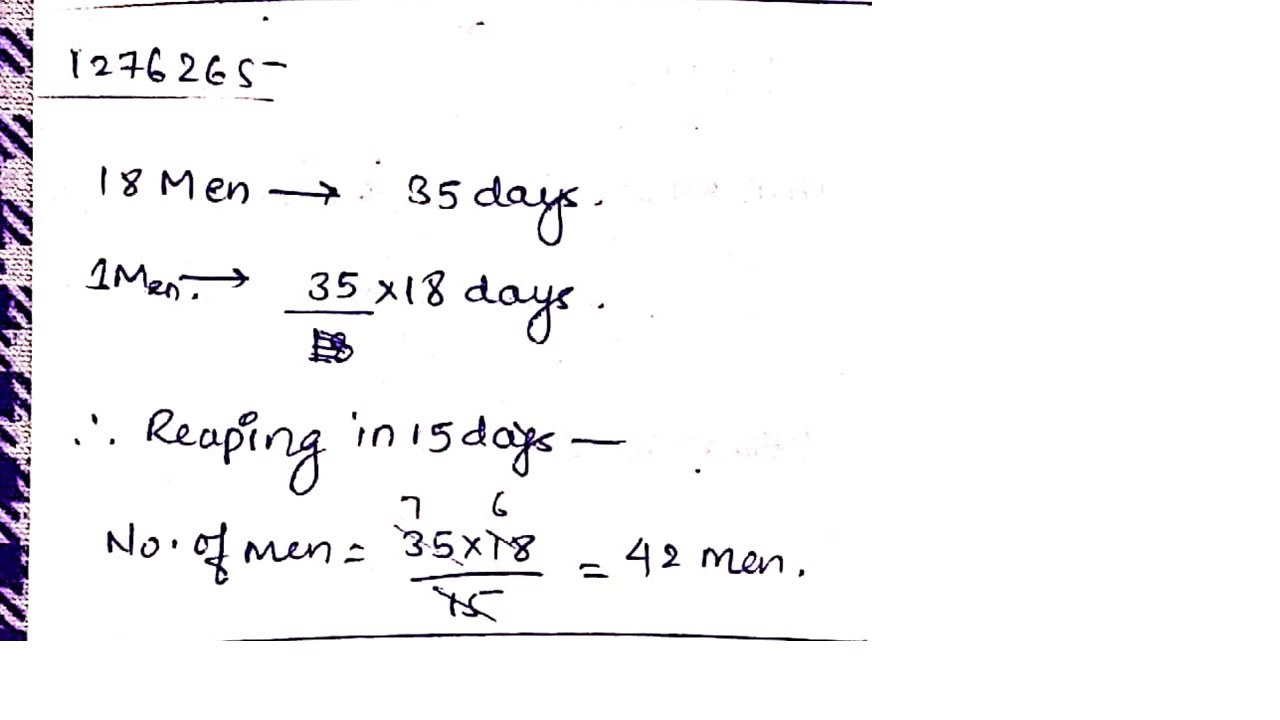 1276265-
18 Men → 35 days.
1 Men. → 35 × 18 days.
∴ Reaping in 15 days —
7 6
No. of men = 35 × 18 = 42 men.
15